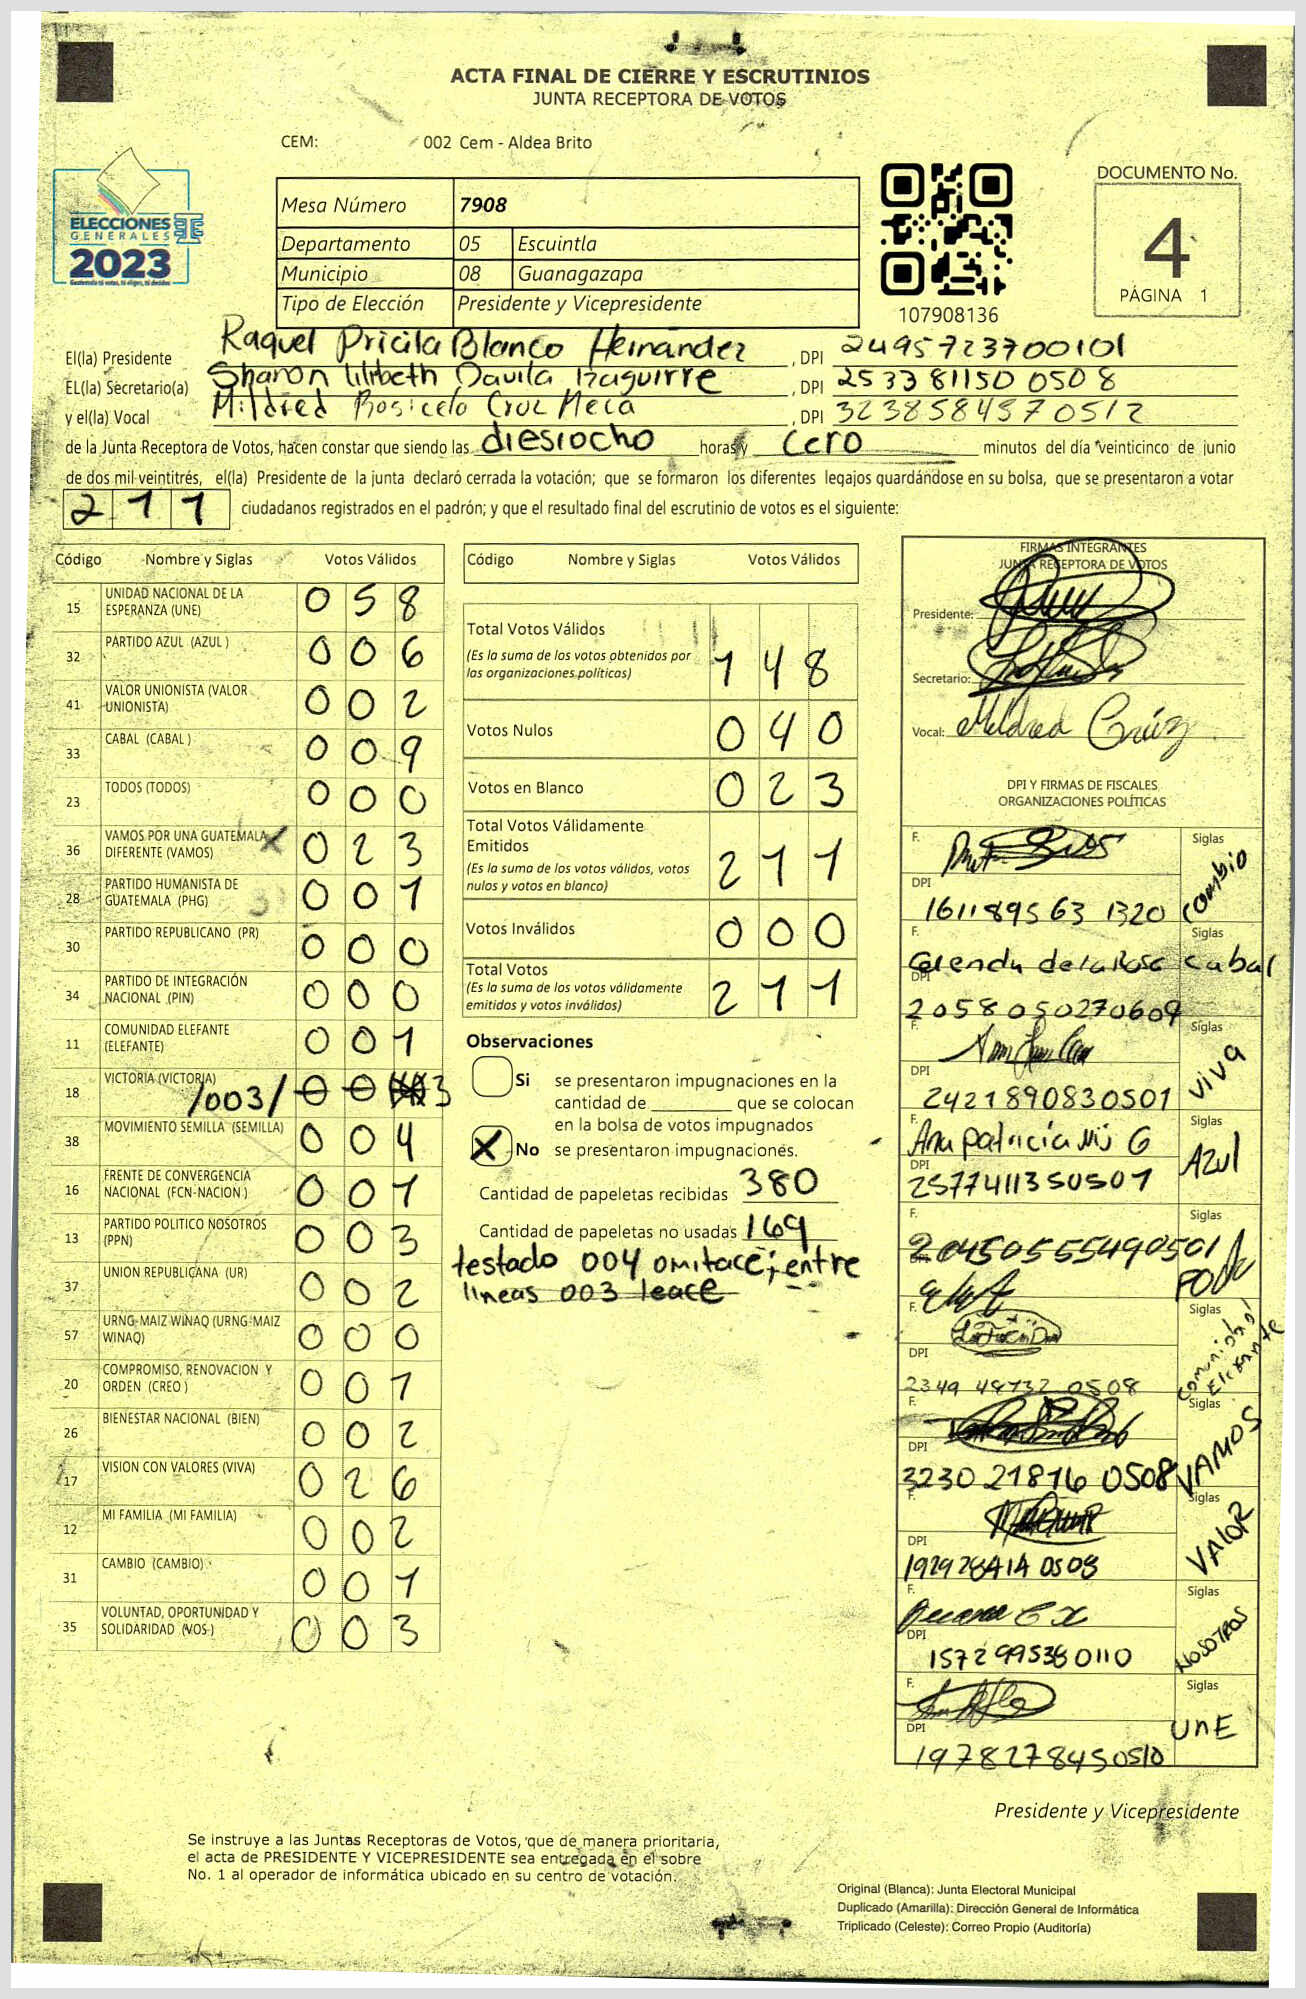 ACTA FINAL DE CIERRE Y ESCRUTINIOS
JUNTA RECEPTORA DE VOTOS
CEM: 002 Cem - Aldea Brito
ELECCIONES
GENERALES
2023
Guatemala tú votas, tú eliges, tú decides
Mesa Número 7908
Departamento 05 Escuintla
Municipio 08 Guanagazapa
Tipo de Elección Presidente y Vicepresidente
107908136
DOCUMENTO No.
4
PÁGINA 1
El(la) Presidente Raquel Pricila Blanco Hernández, DPI 2495723700101
EL(la) Secretario(a) Sharon Lilibeth Davila Izaguirre, DPI 2533811500508
y el(la) Vocal Mildred Rosicela Cruz Meca, DPI 3238584970512
de la Junta Receptora de Votos, hacen constar que siendo las diesiocho horas y cero minutos del día veinticinco de junio
de dos mil veintitrés, el(la) Presidente de la junta declaró cerrada la votación; que se formaron los diferentes legajos guardándose en su bolsa, que se presentaron a votar
211 ciudadanos registrados en el padrón; y que el resultado final del escrutinio de votos es el siguiente:
Código Nombre y Siglas Votos Válidos
15 UNIDAD NACIONAL DE LA ESPERANZA (UNE) 058
32 PARTIDO AZUL (AZUL ) 006
41 VALOR UNIONISTA (VALOR UNIONISTA) 002
33 CABAL (CABAL ) 009
23 TODOS (TODOS) 000
36 VAMOS POR UNA GUATEMALA DIFERENTE (VAMOS) 023
28 PARTIDO HUMANISTA DE GUATEMALA (PHG) 001
30 PARTIDO REPUBLICANO (PR) 000
34 PARTIDO DE INTEGRACIÓN NACIONAL (PIN) 000
11 COMUNIDAD ELEFANTE (ELEFANTE) 001
18 VICTORIA (VICTORIA) /003/ 0 0 3
38 MOVIMIENTO SEMILLA (SEMILLA) 004
16 FRENTE DE CONVERGENCIA NACIONAL (FCN-NACION ) 001
13 PARTIDO POLITICO NOSOTROS (PPN) 003
37 UNION REPUBLICANA (UR) 002
57 URNG-MAIZ WINAQ (URNG-MAIZ WINAQ) 000
20 COMPROMISO, RENOVACION Y ORDEN (CREO ) 001
26 BIENESTAR NACIONAL (BIEN) 002
17 VISION CON VALORES (VIVA) 026
12 MI FAMILIA (MI FAMILIA) 002
31 CAMBIO (CAMBIO) 001
35 VOLUNTAD, OPORTUNIDAD Y SOLIDARIDAD (VOS ) 003
Código Nombre y Siglas Votos Válidos
Total Votos Válidos 148
(Es la suma de los votos obtenidos por
las organizaciones políticas)
Votos Nulos 040
Votos en Blanco 023
Total Votos Válidamente
Emitidos 211
(Es la suma de los votos válidos, votos
nulos y votos en blanco)
Votos Inválidos 000
Total Votos 211
(Es la suma de los votos válidamente
emitidos y votos inválidos)
Observaciones
Si se presentaron impugnaciones en la
cantidad de ________ que se colocan
en la bolsa de votos impugnados
X No se presentaron impugnaciones.
Cantidad de papeletas recibidas 380
Cantidad de papeletas no usadas 169
testado 004 omitace; entre
lineas 003 leace
FIRMAS INTEGRANTES
JUNTA RECEPTORA DE VOTOS
Presidente:
Secretario:
Vocal: Mildred Cruz
DPI Y FIRMAS DE FISCALES
ORGANIZACIONES POLÍTICAS
F. Siglas
DPI 1611895631320 Cambio
F. Glenda de la Rosa Siglas Cabal
DPI 2058050270609
F. Siglas
DPI 2421890830501 VIVA
F. Ana patricia Siglas
DPI 2577411350507 AZUl
F. Siglas
DPI 2045055490501
F. Siglas
DPI 2349 48732 0508 Elefante
F. Siglas
DPI 3230 21816 0508 VAMOS
F. Siglas
DPI 192928414 0508 VALOR
F. Siglas
DPI 1572995380110 NOSOTROS
F. Siglas
DPI 1978278450510 UnE
Presidente y Vicepresidente
Se instruye a las Juntas Receptoras de Votos, que de manera prioritaria,
el acta de PRESIDENTE Y VICEPRESIDENTE sea entregada en el sobre
No. 1 al operador de informática ubicado en su centro de votación.
Original (Blanca): Junta Electoral Municipal
Duplicado (Amarilla): Dirección General de Informática
Triplicado (Celeste): Correo Propio (Auditoría)